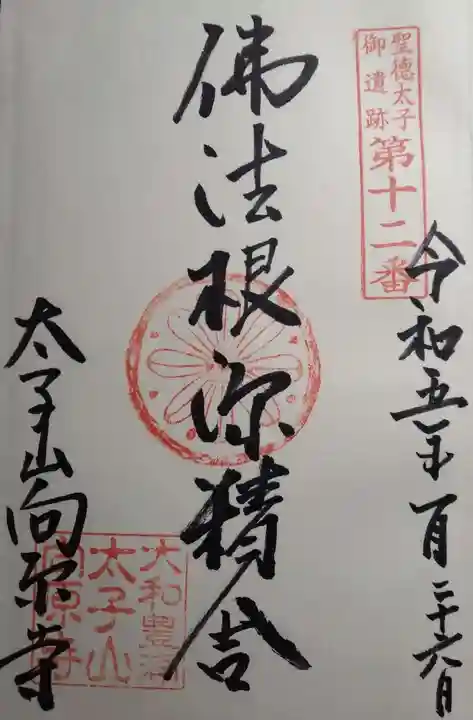 聖徳太子
御遺跡
第十二番
令和五年一月二十六日
佛法根源精舎
太子山向原寺
大和豊浦
太子山
向原寺